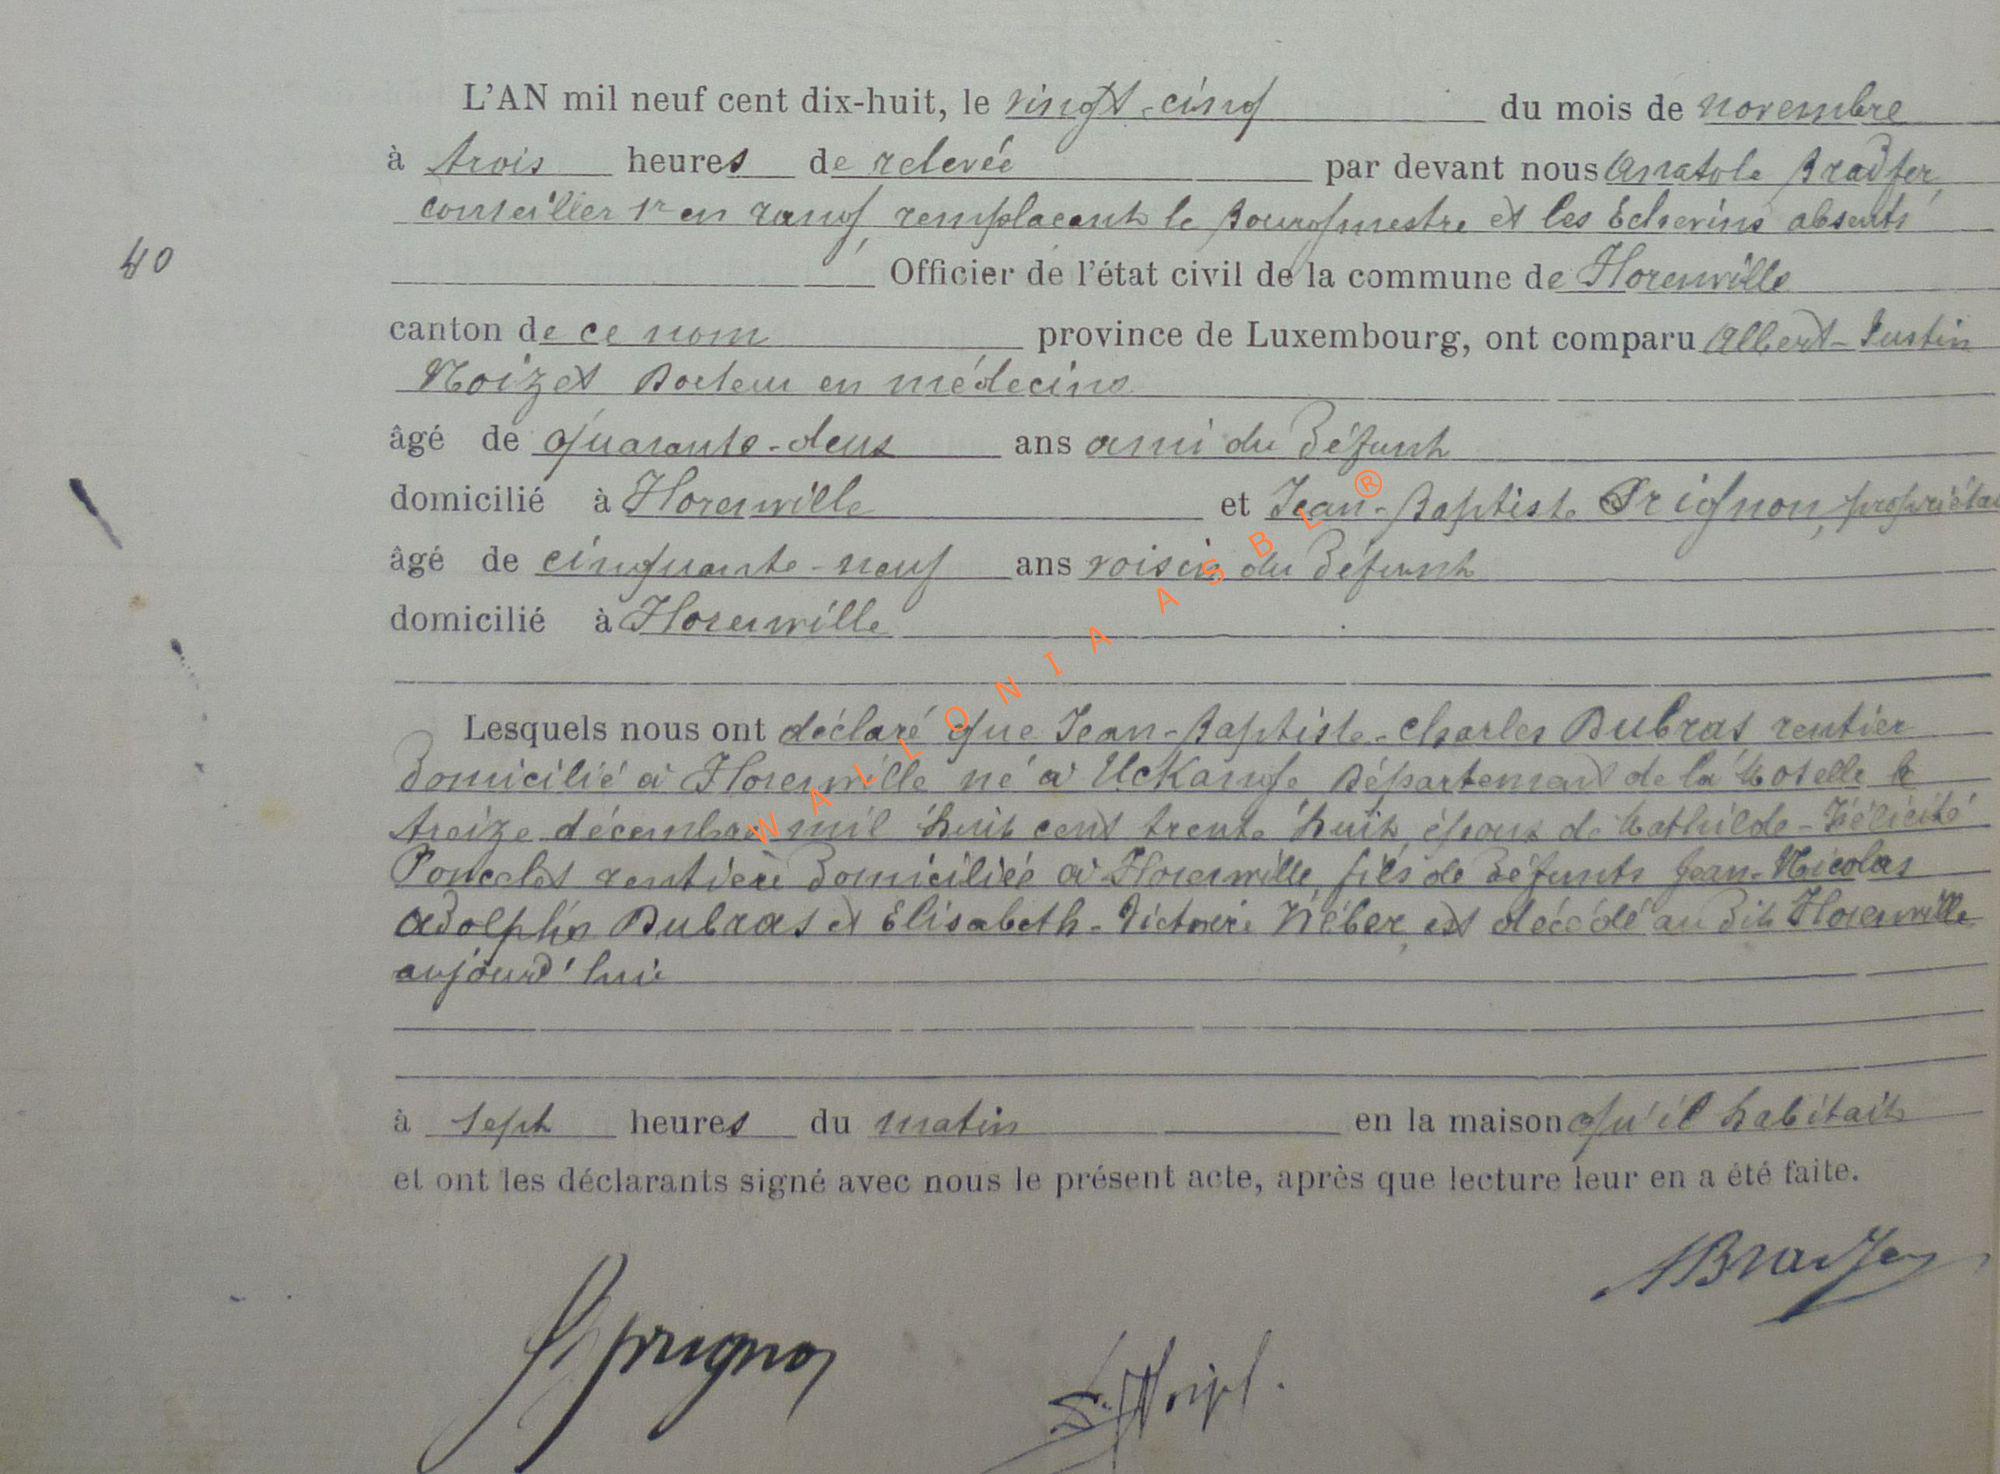 L'AN mil neuf cent dix-huit, le vingt-cinq du mois de novembre
à trois heures de relevée par devant nous Anatole Bradfer,
conseiller 1r en rang, remplaçant le Bourgmestre et les Echevins absents
40
Officier de l'état civil de la commune de Florenville
canton de ce nom province de Luxembourg, ont comparu Albert-Justin
Noizet Docteur en médecine
âgé de quarante-deux ans ami du défunt
domicilié à Florenville et Jean-Baptiste Prignon, propriétai
âgé de cinquante-neuf ans voisin du défunt
domicilié à Florenville
Lesquels nous ont déclaré que Jean-Baptiste-Charles Dubras rentier
domicilié à Florenville né à Uckange Département de la Moselle le
treize décembre mil huit cent trente huit, époux de Mathilde-Félicité
Poncelet rentière domiciliée à Florenville, fils de défunts Jean-Nicolas
Adolphe Dubras et Elisabeth-Victoire Viéber, est décédé au dit Florenville
aujourd'hui
à sept heures du matin en la maison qu'il habitait
et ont les déclarants signé avec nous le présent acte, après que lecture leur en a été faite.
ABradfer
Prignon
Noizet.
WALLONIA ASBL ®